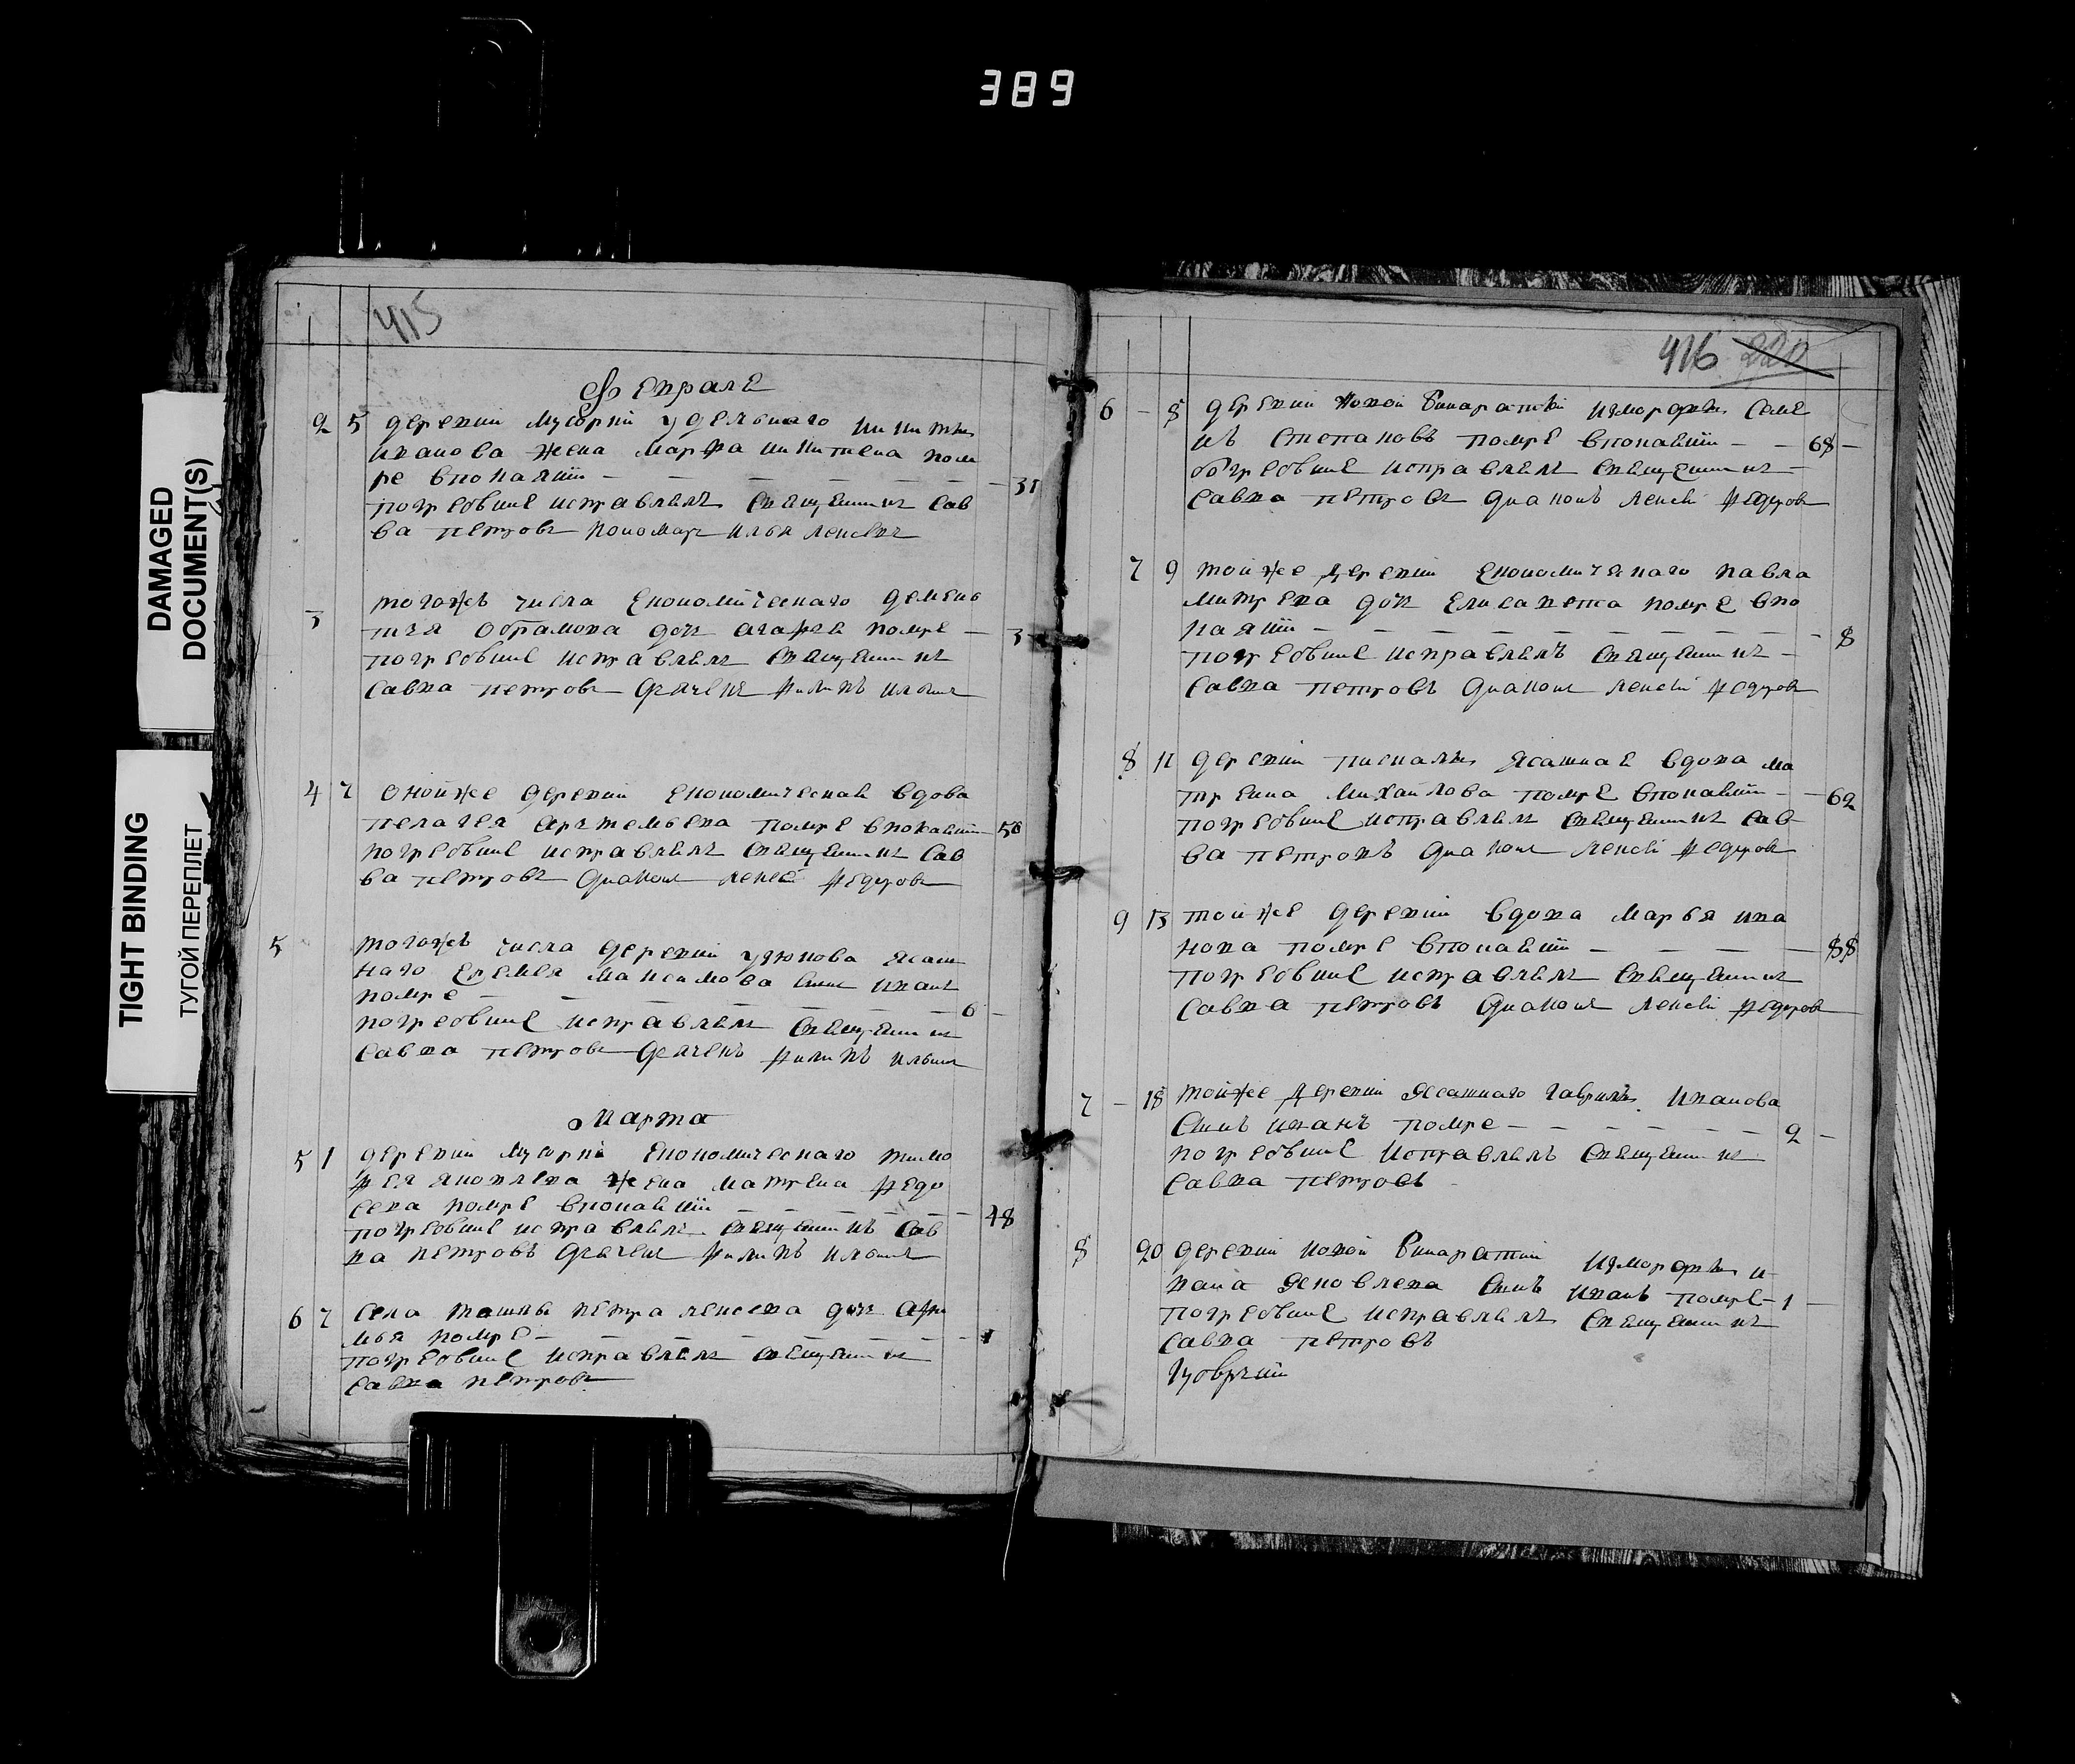 389
DAMAGED
DOCUMENT(S)
TIGHT BINDING
ТУГОЙ ПЕРЕПЛЕТ
415
Февралѣ
2 5 деревни Мусорки удельнаго Никиты
Иванова жена Марфа Никитена пом
ре впокаянии 31
погребение исправлялъ священникъ Сав
ва Петровъ пономарь Илья
3 тогожъ числа Економическаго Демень
тия Обрамова дочь Агафея помре 3
погребение исправлялъ священникъ
Савва Петровъ дьячекъ Филипъ Ильинъ
4 7 онойже деревни економическая вдова
Пелагея Артемьева помре впокаянии
погребение исправлялъ священникъ Сав
ва Петровъ диаконъ Алексей Федоровъ
5 тогожъ числа деревни Узюкова ясаш
наго Еремея Максимова сынъ Иванъ
помре 6
погребение исправлялъ священникъ
Савва Петровъ дьячекъ Филипъ Ильинъ
Марта
5 1 деревни Мусорки Економическаго Тимо
фея Яковлева жена Матрена Федо
сева помре впокаянии 48
погребение исправлялъ священникъ Сав
ва Петровъ дьячекъ Филипъ Ильинъ
6 7 села Ташлы Петра Алексева дочь Афи
мья помре 1
погребение исправлялъ священникъ
Савва Петровъ
416 220
6 8 деревни Новой Бинаратки Семе
нъ Степановъ помре впокаянии 68
погребение исправлялъ священникъ
Савва Петровъ диаконъ Алексей Федоровъ
7 9 тойже деревни Економическаго Павла
Митрева дочь Елисавета помре впо
каянии 8
погребение исправлялъ священникъ
Савва Петровъ диаконъ Алексей Федоровъ
8 11 деревни Пискалы ясашная вдова Ма
трена Михайлова помре впокаянии 62
погребение исправлялъ священникъ Сав
ва Петровъ диаконъ Алексей Федоровъ
9 13 тойже деревни вдова Марья Ива
нова помре впокаянии 88
погребение исправлялъ священникъ
Савва Петровъ диаконъ Алексей Федоровъ
7 18 тойже деревни ясашнаго Гаврилы Иванова
сынъ Иванъ помре 2
погребение исправлялъ священникъ
Савва Петровъ
8 20 деревни Новой Бинаратки И
вана Яковлева сынъ Иванъ помре 1
погребение исправлялъ священникъ
Савва Петровъ